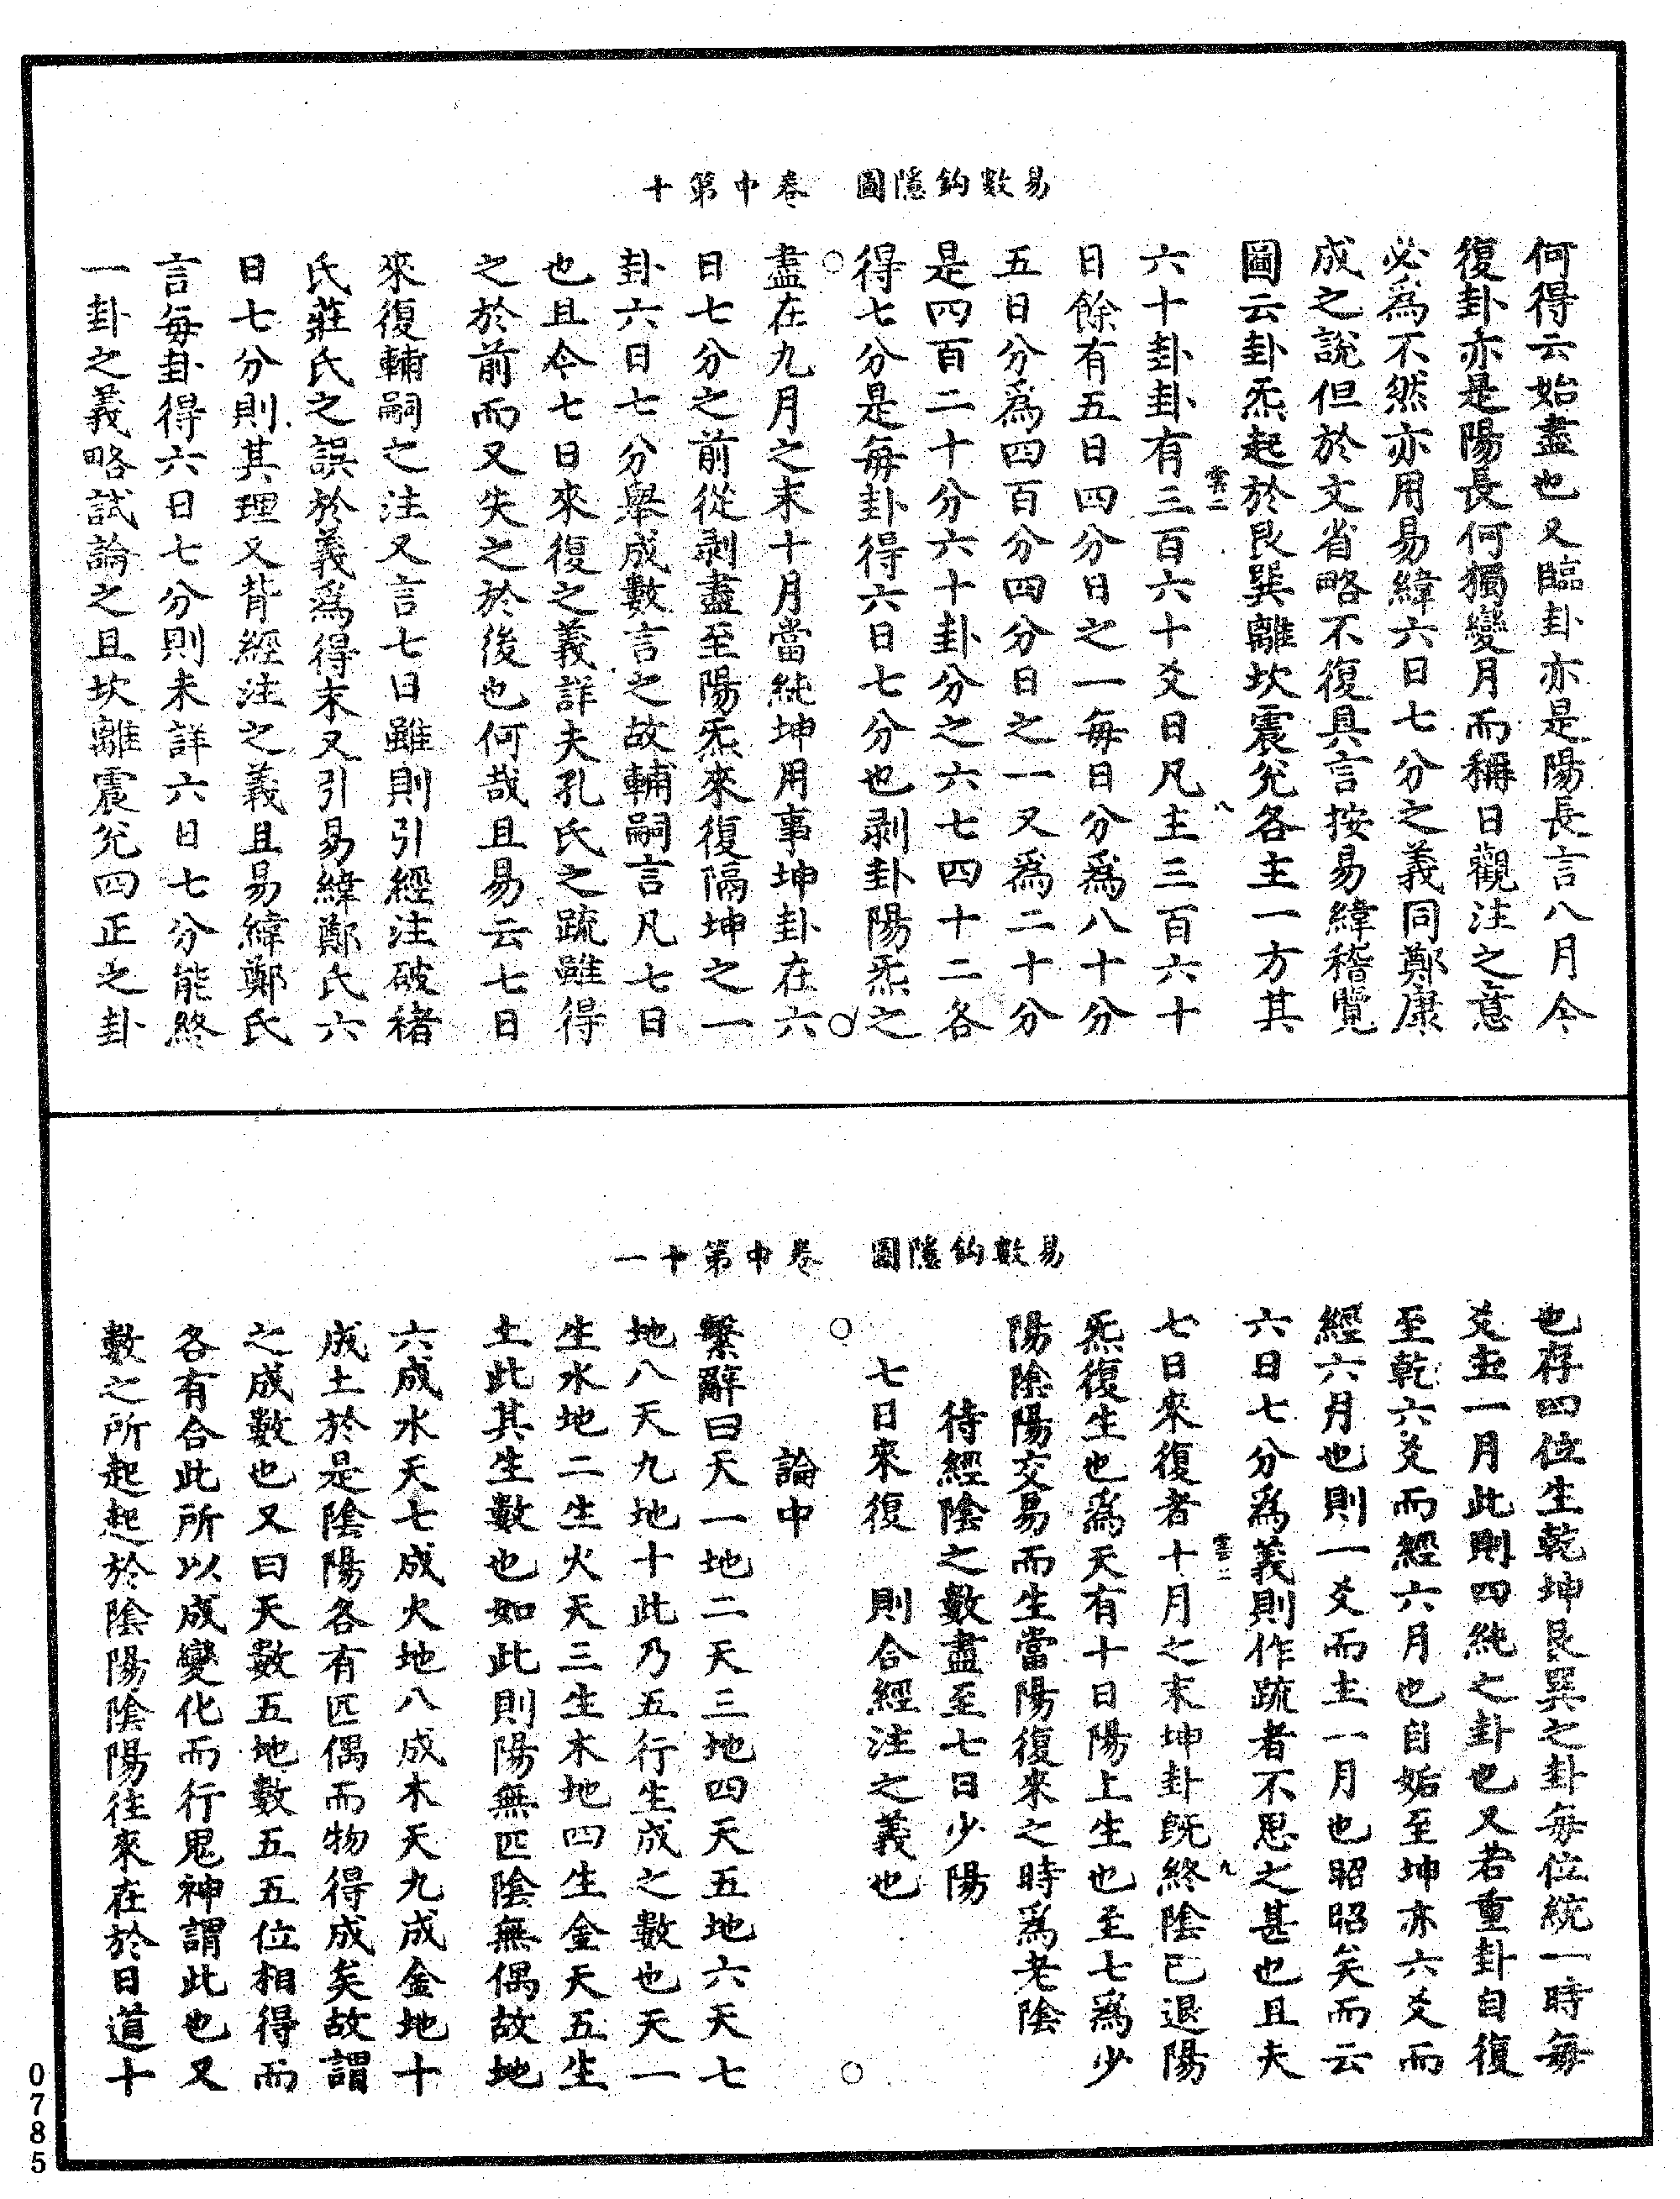 易數鈎隱圖　卷中第十
何得云始盡也又臨卦亦是陽長言八月今
復卦亦是陽長何獨變月而稱日觀注之意
必爲不然亦用易緯六日七分之義同鄭康
成之說但於文省略不復具言按易緯稽覽
圖云卦炁起於艮巽離坎震兊各主一方其
雲二
八
六十卦卦有三百六十爻日凡主三百六十
日餘有五日四分日之一每日分爲八十分
五日分爲四百分四分日之一又爲二十分
是四百二十分六十卦分之六七四十二各
得七分是每卦得六日七分也剥卦陽炁之
盡在九月之末十月當純坤用事坤卦在六
日七分之前從剥盡至陽炁來復隔坤之一
卦六日七分舉成數言之故輔嗣言凡七日
也且今七日來復之義詳夫孔氏之疏雖得
之於前而又失之於後也何哉且易云七日
來復輔嗣之注又言七日雖則引經注破褚
氏莊氏之誤於義爲得末又引易緯鄭氏六
日七分則其理又背經注之義且易緯鄭氏
言每卦得六日七分則未詳六日七分能終
一卦之義略試論之且坎離震兊四正之卦
易數鈎隱圖　卷中第十一
也存四位生乾坤艮巽之卦每位統一時每
爻主一月此則四純之卦也又若重卦自復
至乾六爻而經六月也自姤至坤亦六爻而
經六月也則一爻而主一月也昭昭矣而云
六日七分爲義則作疏者不思之甚也且夫
雲二
九
七日來復者十月之末坤卦旣終陰已退陽
炁復生也爲天有十日陽上生也至七爲少
陽陰陽交易而生當陽復來之時爲老陰
待經陰之數盡至七日少陽
七日來復　則合經注之義也
論中
繫辭曰天一地二天三地四天五地六天七
地八天九地十此乃五行生成之數也天一
生水地二生火天三生木地四生金天五生
土此其生數也如此則陽無匹陰無偶故地
六成水天七成火地八成木天九成金地十
成土於是陰陽各有匹偶而物得成矣故謂
之成數也又曰天數五地數五五位相得而
各有合此所以成變化而行鬼神謂此也又
數之所起起於陰陽陰陽往來在於日道十
0785